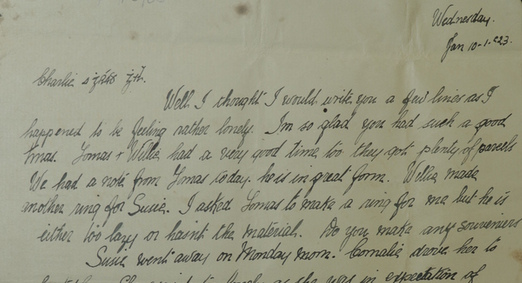 Wednesday.
Jan 10-1-23.
Charlie a
Well I thought I would write you a few lines as I
happened to be feeling rather lonely. I'm so glad you had such a good
time. Tomas + Willie had a very good time too they got plenty of parcels
We had a note from Tomas today. he is in great form. Willie made
another ring for Susie. I asked Tomas to make a ring for me but he is
either too lazy or hasnt the material. Do you make any souveniers
Susie went away on Monday morn. drove her to
as she was in expectation of